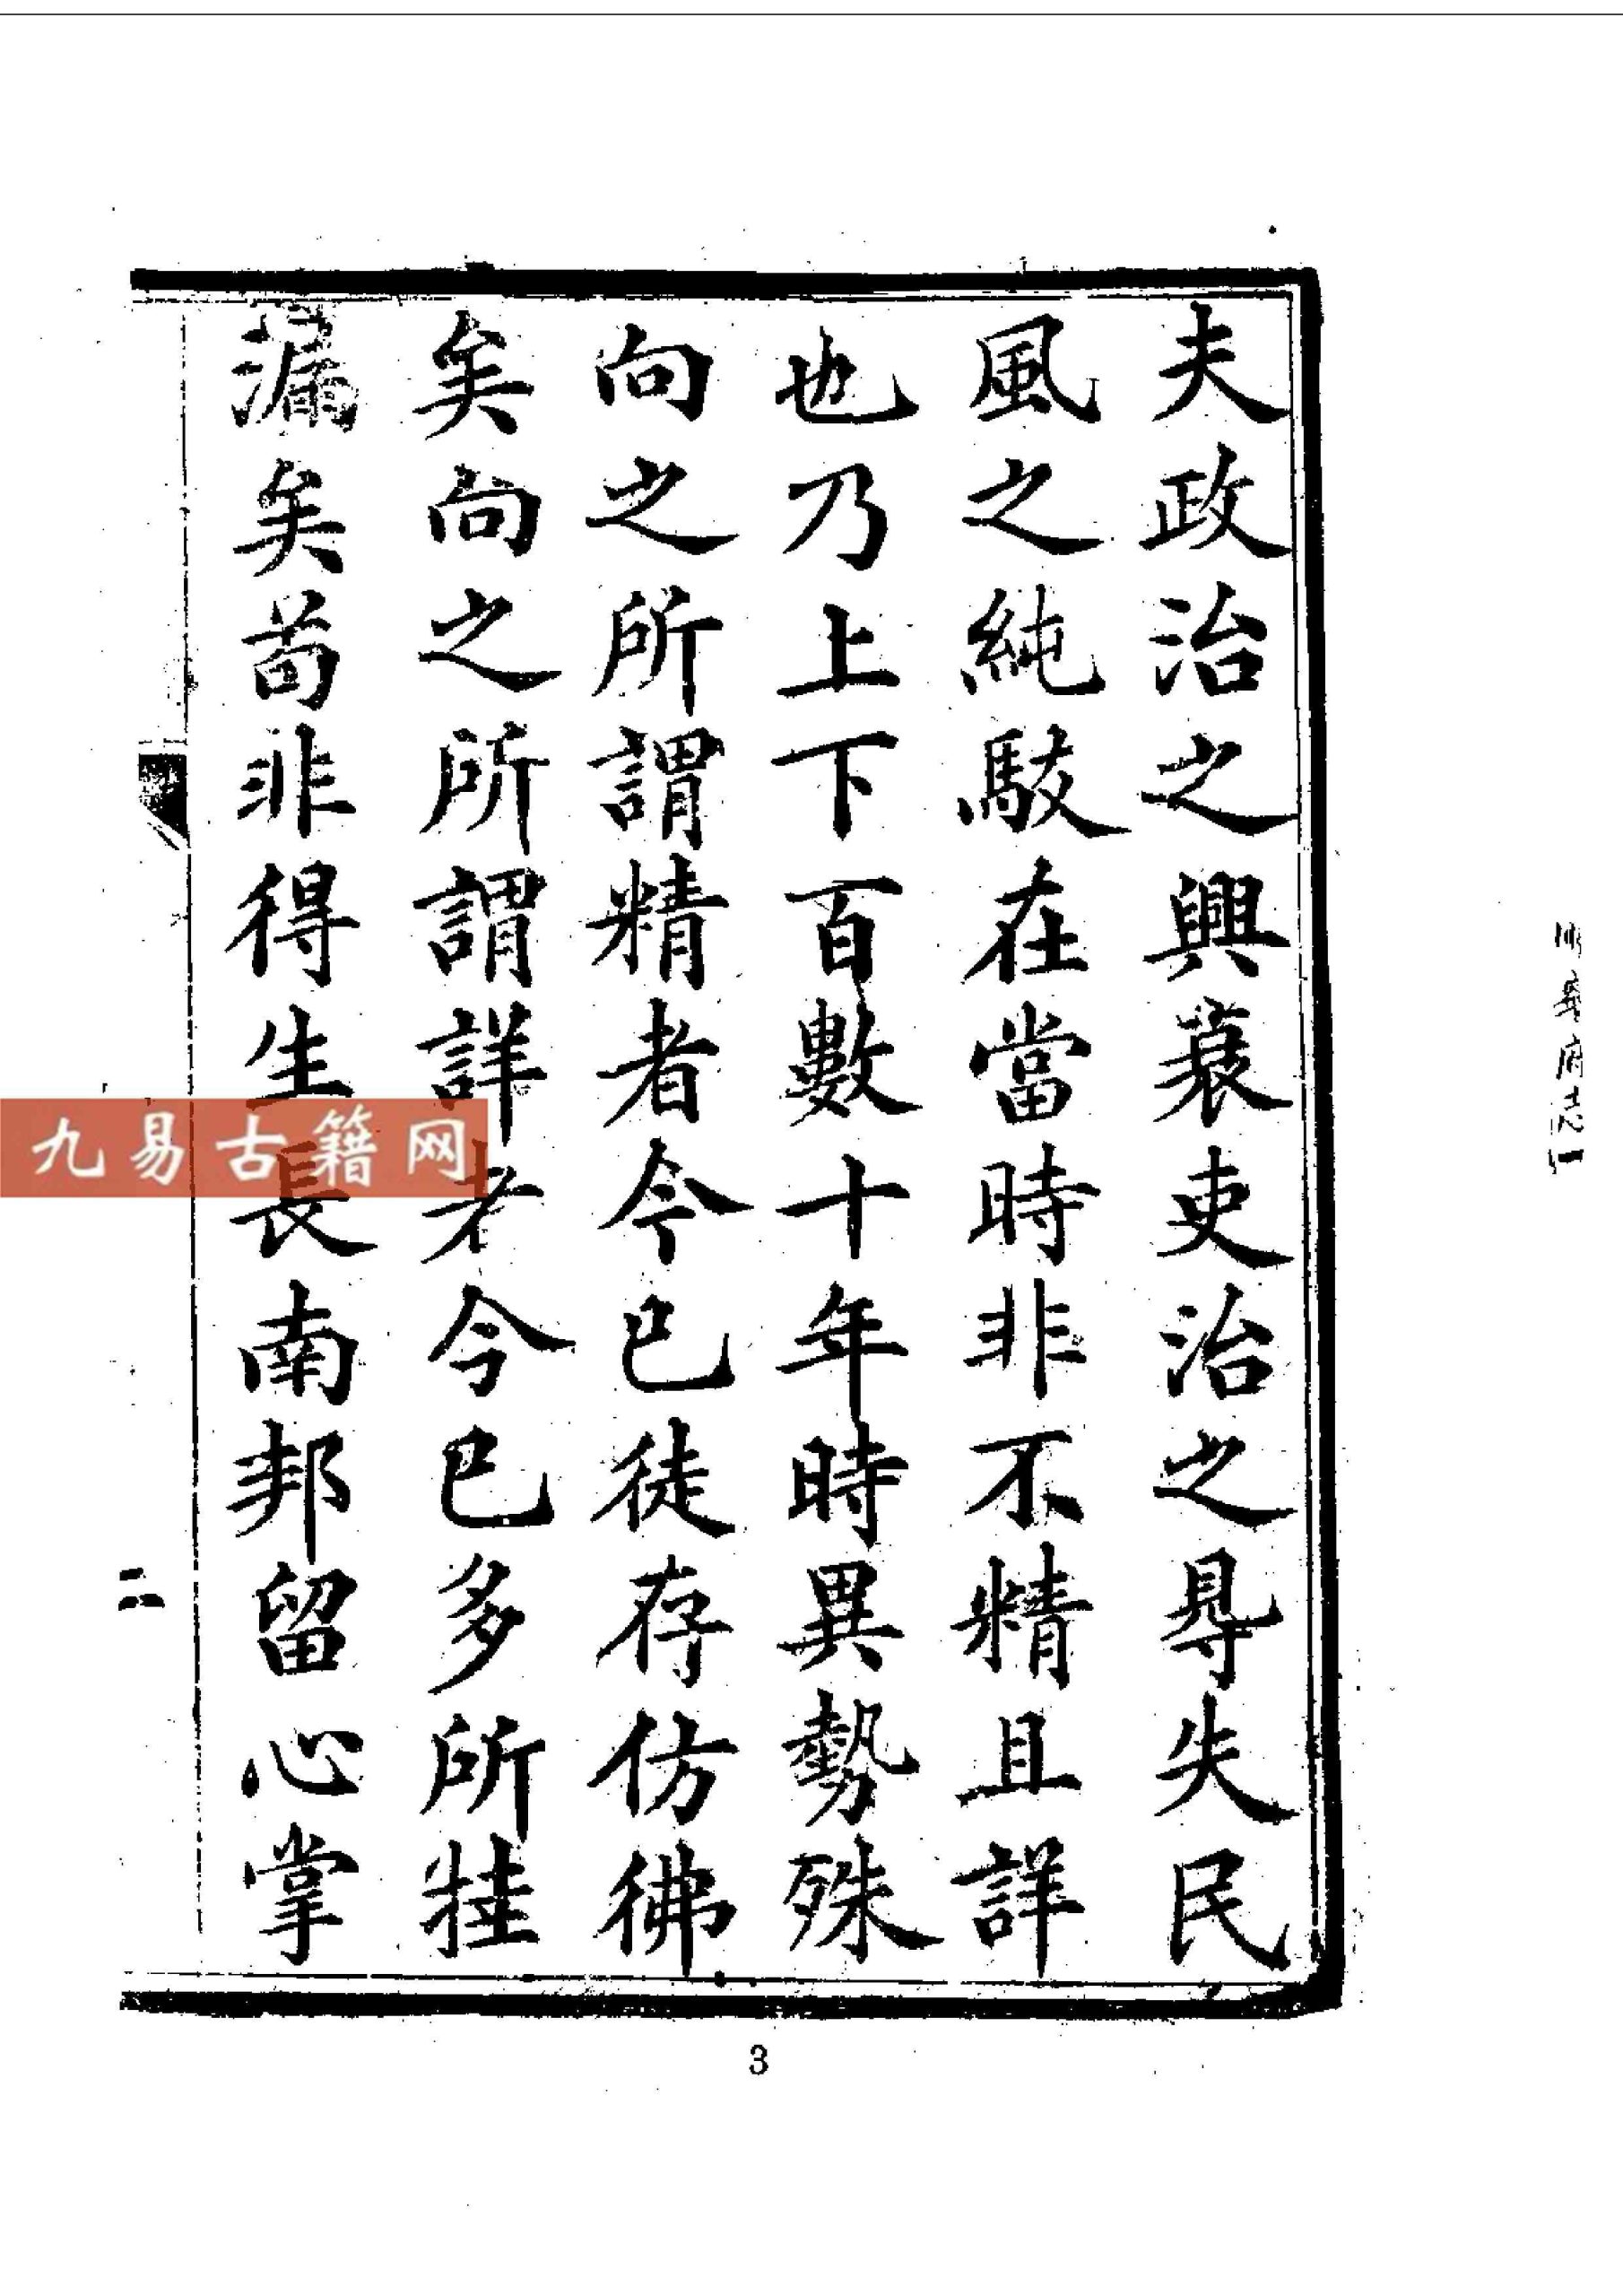 府志一
夫政治之興衰吏治之㝵失民
風之純駁在當時非不精且詳
也乃上下百數十年時異勢殊
向之所謂精者今已徒存仿彿
矣向之所謂詳者今已多所挂
漏矣苟非得生長南邦留心掌
二
3
九易古籍网